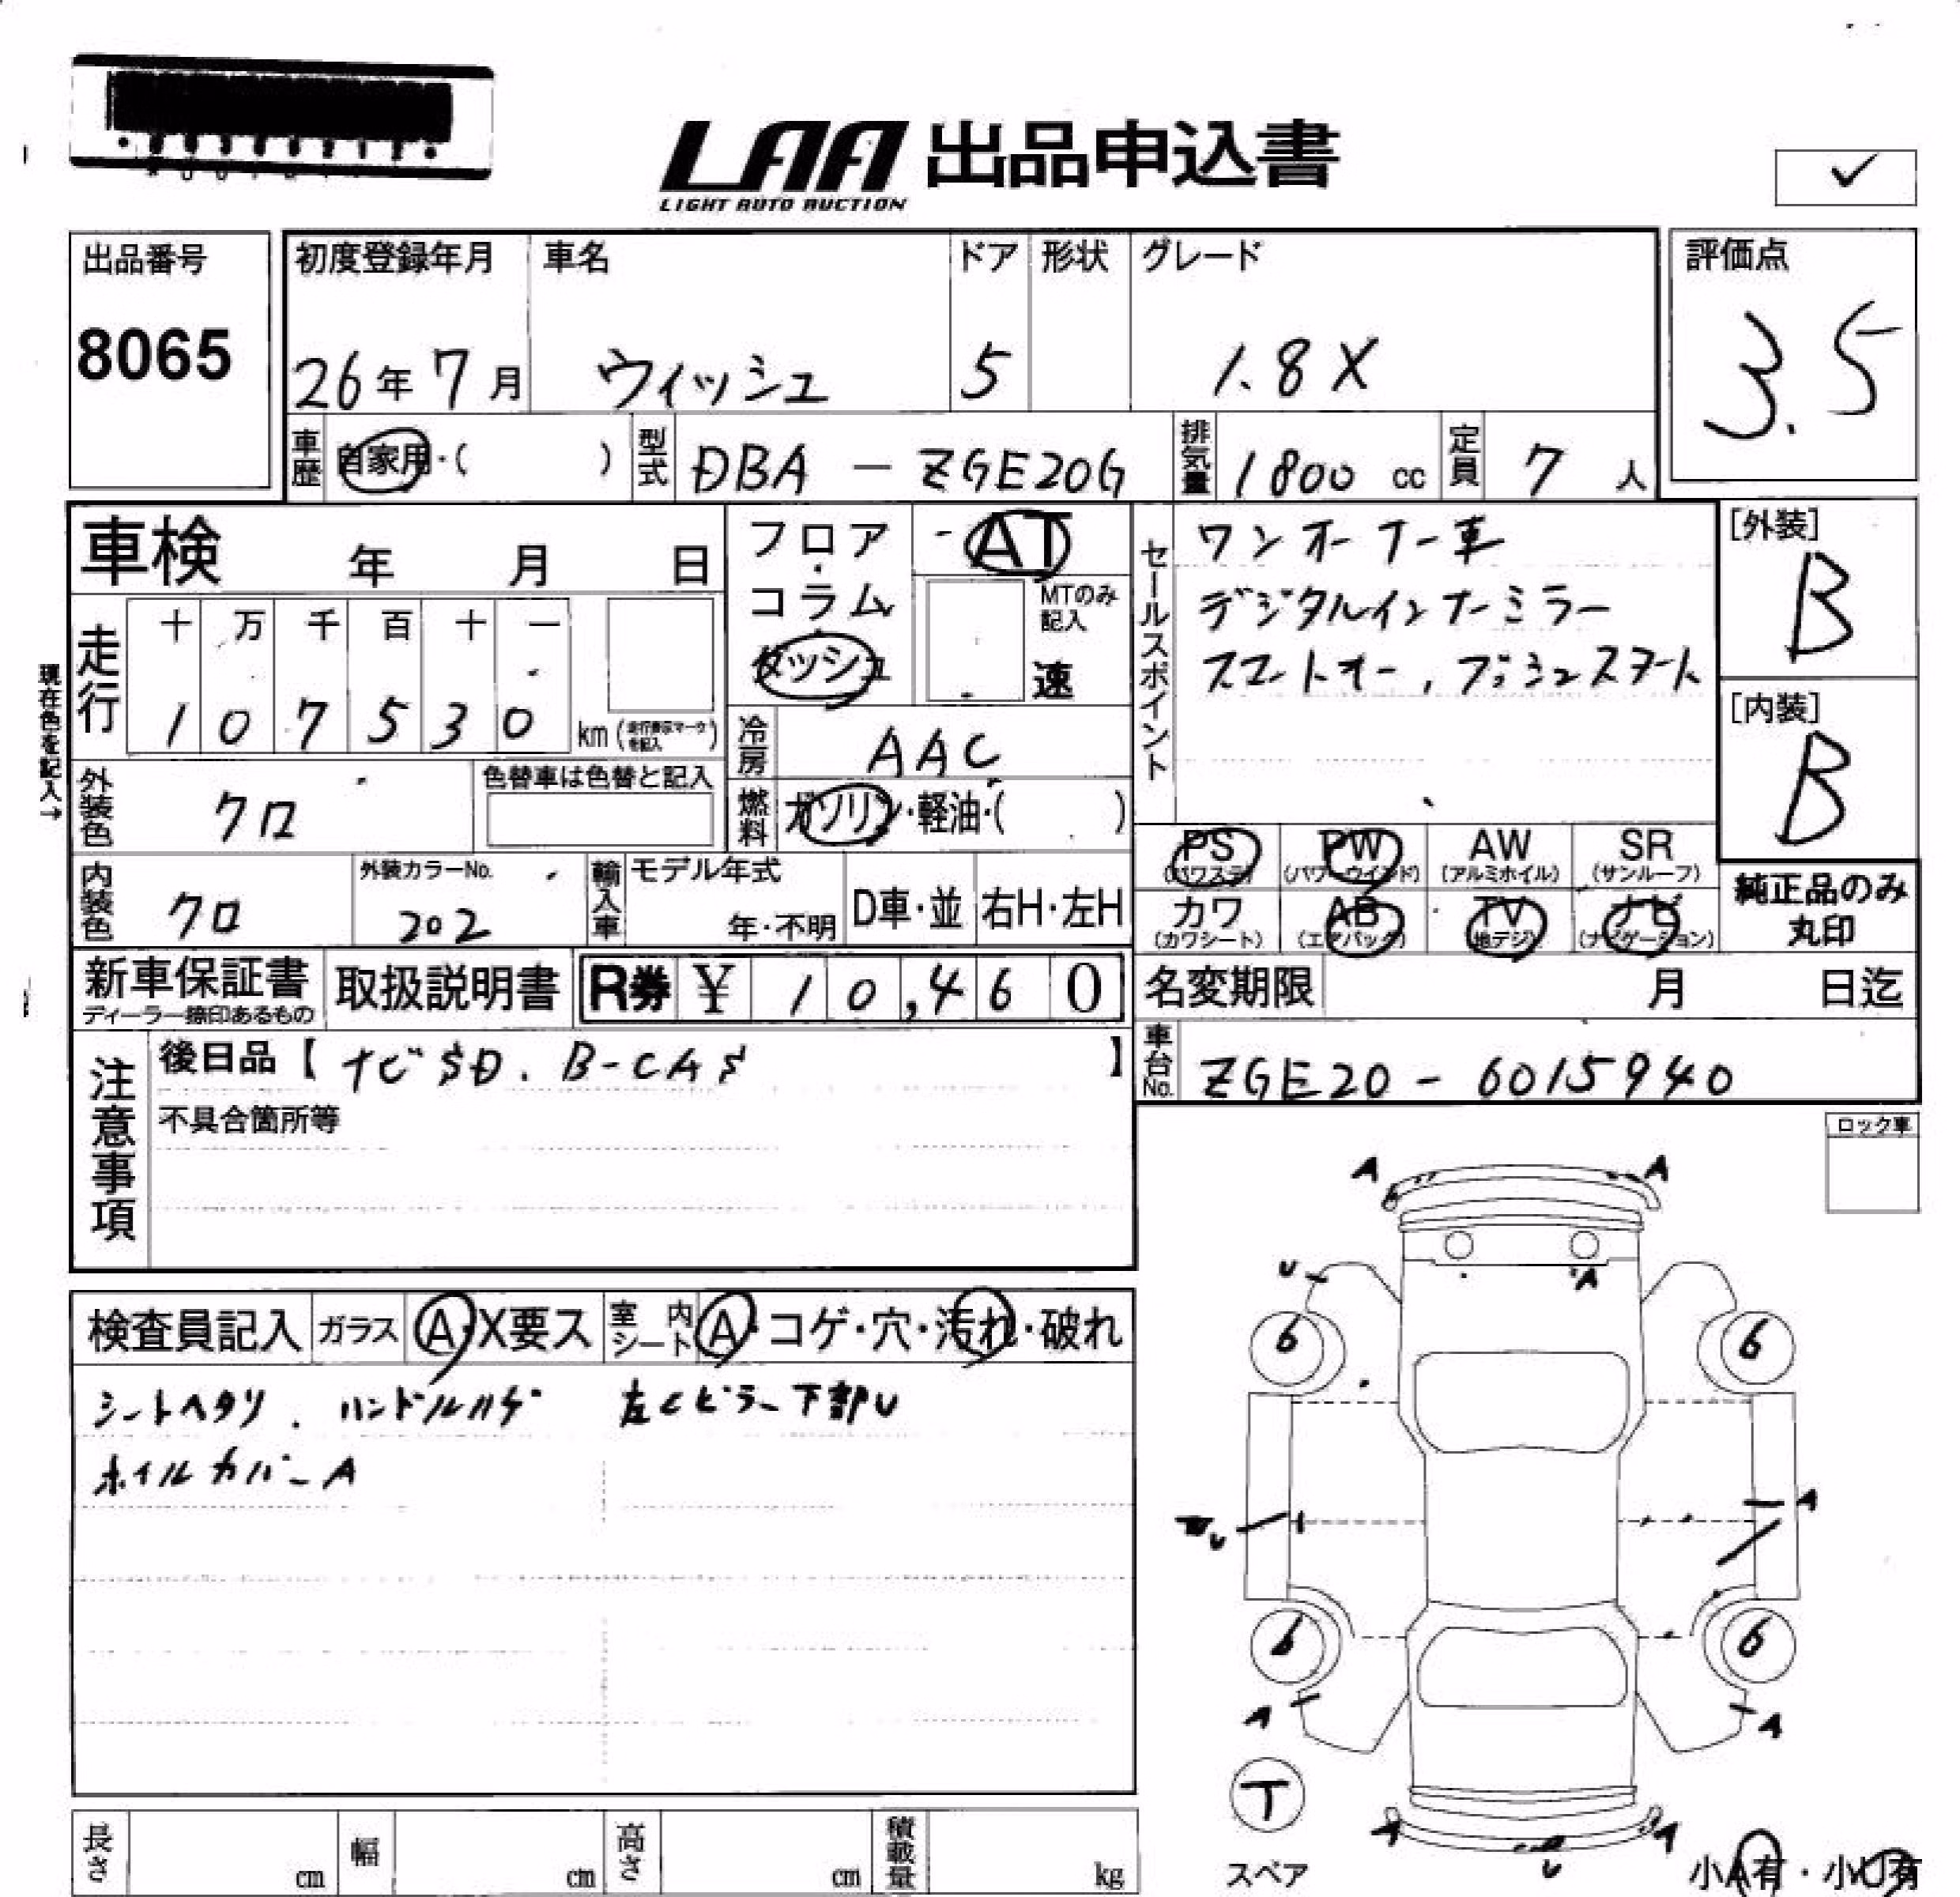 LAA 出品申込書
LIGHT AUTO AUCTION
✓
出品番号
8065
初度登録年月 車名 ドア 形状 グレード
26年 7月 ウィッシュ 5 1.8X
評価点
3.5
車歴 自家用・( ) 型式 DBA - ZGE20G 排気量 1800 cc 定員 7 人
車検 年 月 日
フロア・コラム・ダッシュ
AT
MTのみ記入
速
セールスポイント
ワンオーナー車
デジタルインナーミラー
スマートキー, プッシュスタート
[外装]
B
[内装]
B
現在色を記入→
走行 十 万 千 百 十 一
1 0 7 5 3 0 km (走行表示マークを記入)
冷房 AAC
外装色 クロ 色替車は色替と記入
燃料 ガソリン・軽油・( )
PS (パワステ) PW (パワーウインド) AW (アルミホイル) SR (サンルーフ)
カワ (カワシート) AB (エアバック) TV (地デジ) ナビ (ナビゲーション)
純正品のみ丸印
内装色 クロ 外装カラーNo. 202 輸入車 モデル年式 年・不明 D車・並 右H・左H
新車保証書 ディーラー捺印あるもの 取扱説明書 R券 ¥ 10,460
名変期限 月 日迄
車台No. ZGE20 - 6015940
注意事項
後日品【 ナビSD. B-CAS 】
不具合箇所等
ロック車
検査員記入 ガラス A・X要ス 室内シート A・コゲ・穴・汚れ・破れ
シートヘタリ. ハンドルハゲ 左Cピラー下部U
ホイルカバーA
A A
U A
6 6
A
U
6 6
A A
T
スペア
A U A
小A有・小U有
長さ cm 幅 cm 高さ cm 積載量 kg